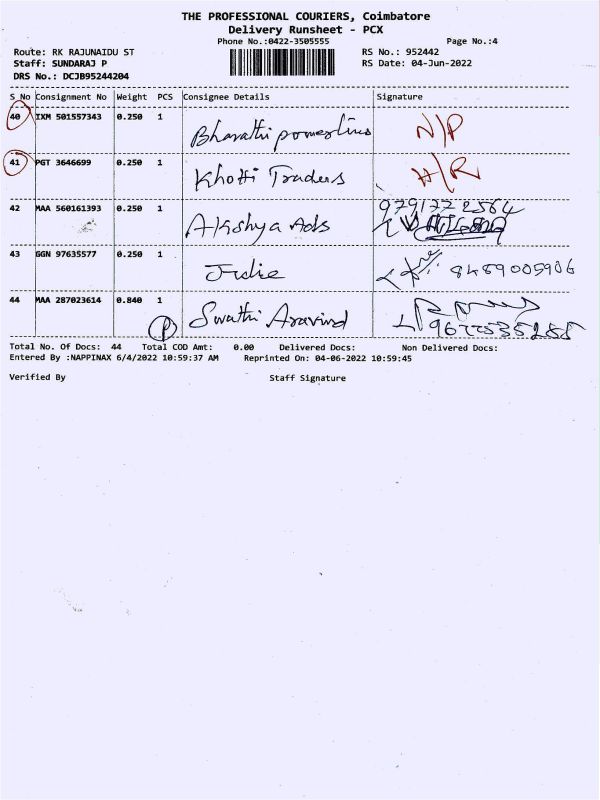 THE PROFESSIONAL COURIERS, Coimbatore
Delivery Runsheet - PCX
Phone No.:0422-3505555 Page No.:4
Route: RK RAJUNAIDU ST RS No.: 952442
Staff: SUNDARAJ P RS Date: 04-Jun-2022
DRS No.: DCJB95244204
S No Consignment No Weight PCS Consignee Details Signature
40 IXM 501557343 0.250 1 Bharathi powerlins N/P
41 PGT 3646699 0.250 1 Khotti Traders H/R
42 MAA 560161393 0.250 1 Akshya Ads 9791772564
43 GGN 97635577 0.250 1 Judie 8489005906
44 MAA 287023614 0.840 1 P Swathi Aravind
Total No. Of Docs: 44 Total COD Amt: 0.00 Delivered Docs: Non Delivered Docs:
Entered By :NAPPINAX 6/4/2022 10:59:37 AM Reprinted On: 04-06-2022 10:59:45
Verified By Staff Signature